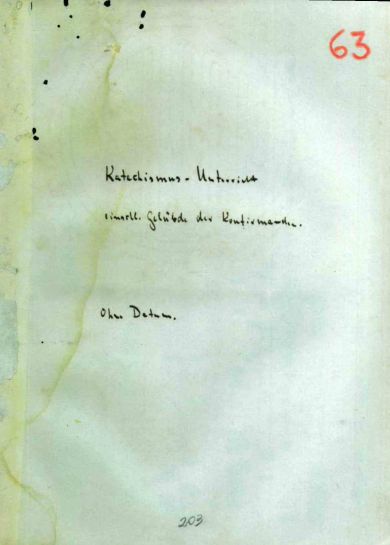 63
Katechismus-Unterricht
einschl. Gelübde der Konfirmanden.
Ohne Datum.
203